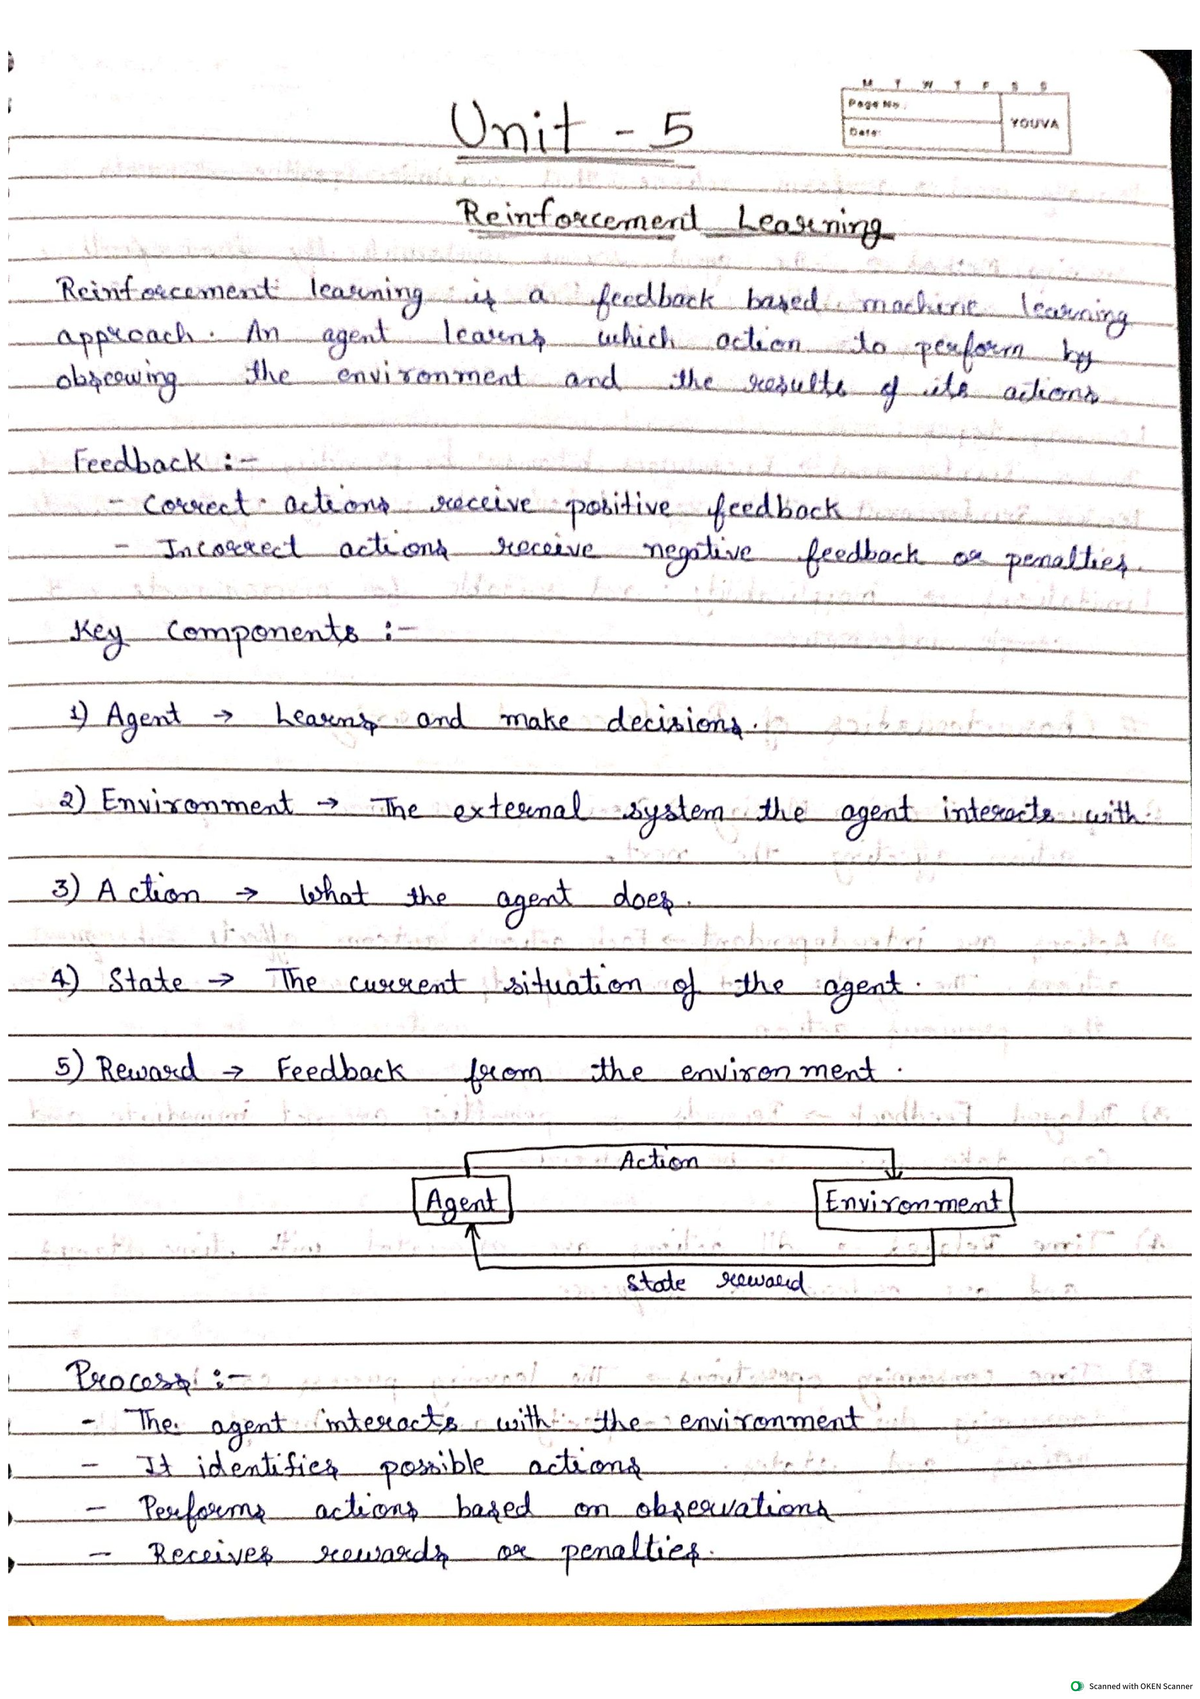 M T W T F S S
Page No.:
Date:
YOUVA
Unit - 5
Reinforcement Learning
Reinforcement learning is a feedback based machine learning
approach. An agent learns which action to perform by
observing the environment and the results of its actions
Feedback :-
- Correct actions receive positive feedback
- Incorrect actions receive negative feedback or penalties.
Key Components :-
1) Agent → Learns and make decisions.
2) Environment → The external system the agent interacts with.
3) Action → What the agent does.
4) State → The current situation of the agent.
5) Reward → Feedback from the environment.
Action
Agent
Environment
State reward
Process :-
- The agent interacts with the environment
- It identifies possible actions
- Performs actions based on observations
- Receives rewards or penalties.
Scanned with OKEN Scanner